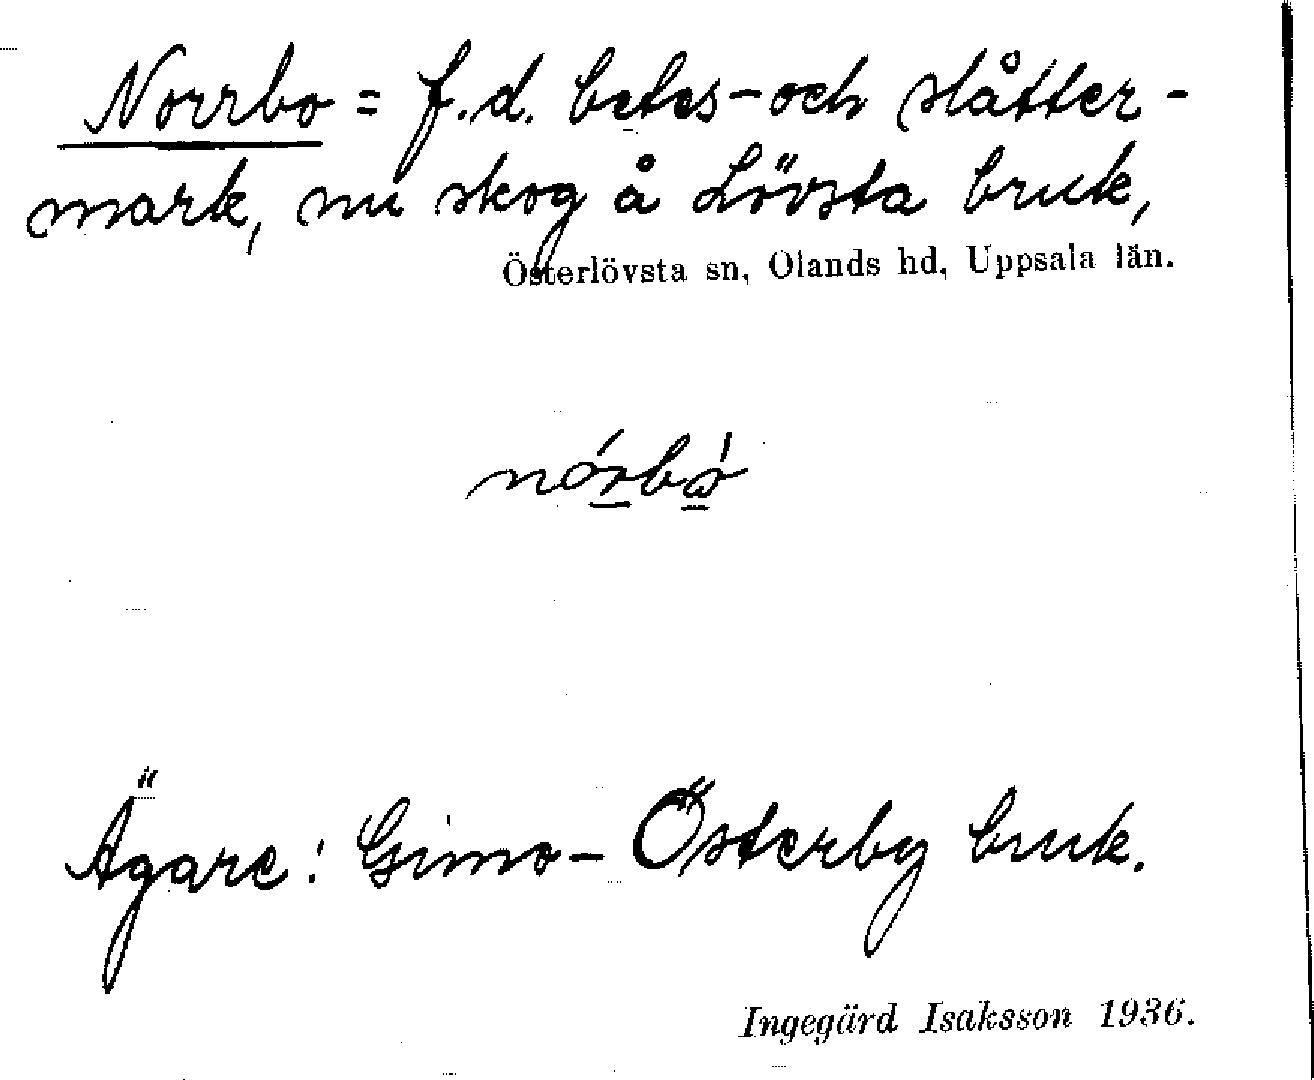 Norrbo = f.d. betes- och slåtter-
mark, nu skog å Lövsta bruk,
Österlövsta sn, Olands hd, Uppsala län.
Ägare: Gimo-Österby bruk.
Ingegärd Isaksson 1936.